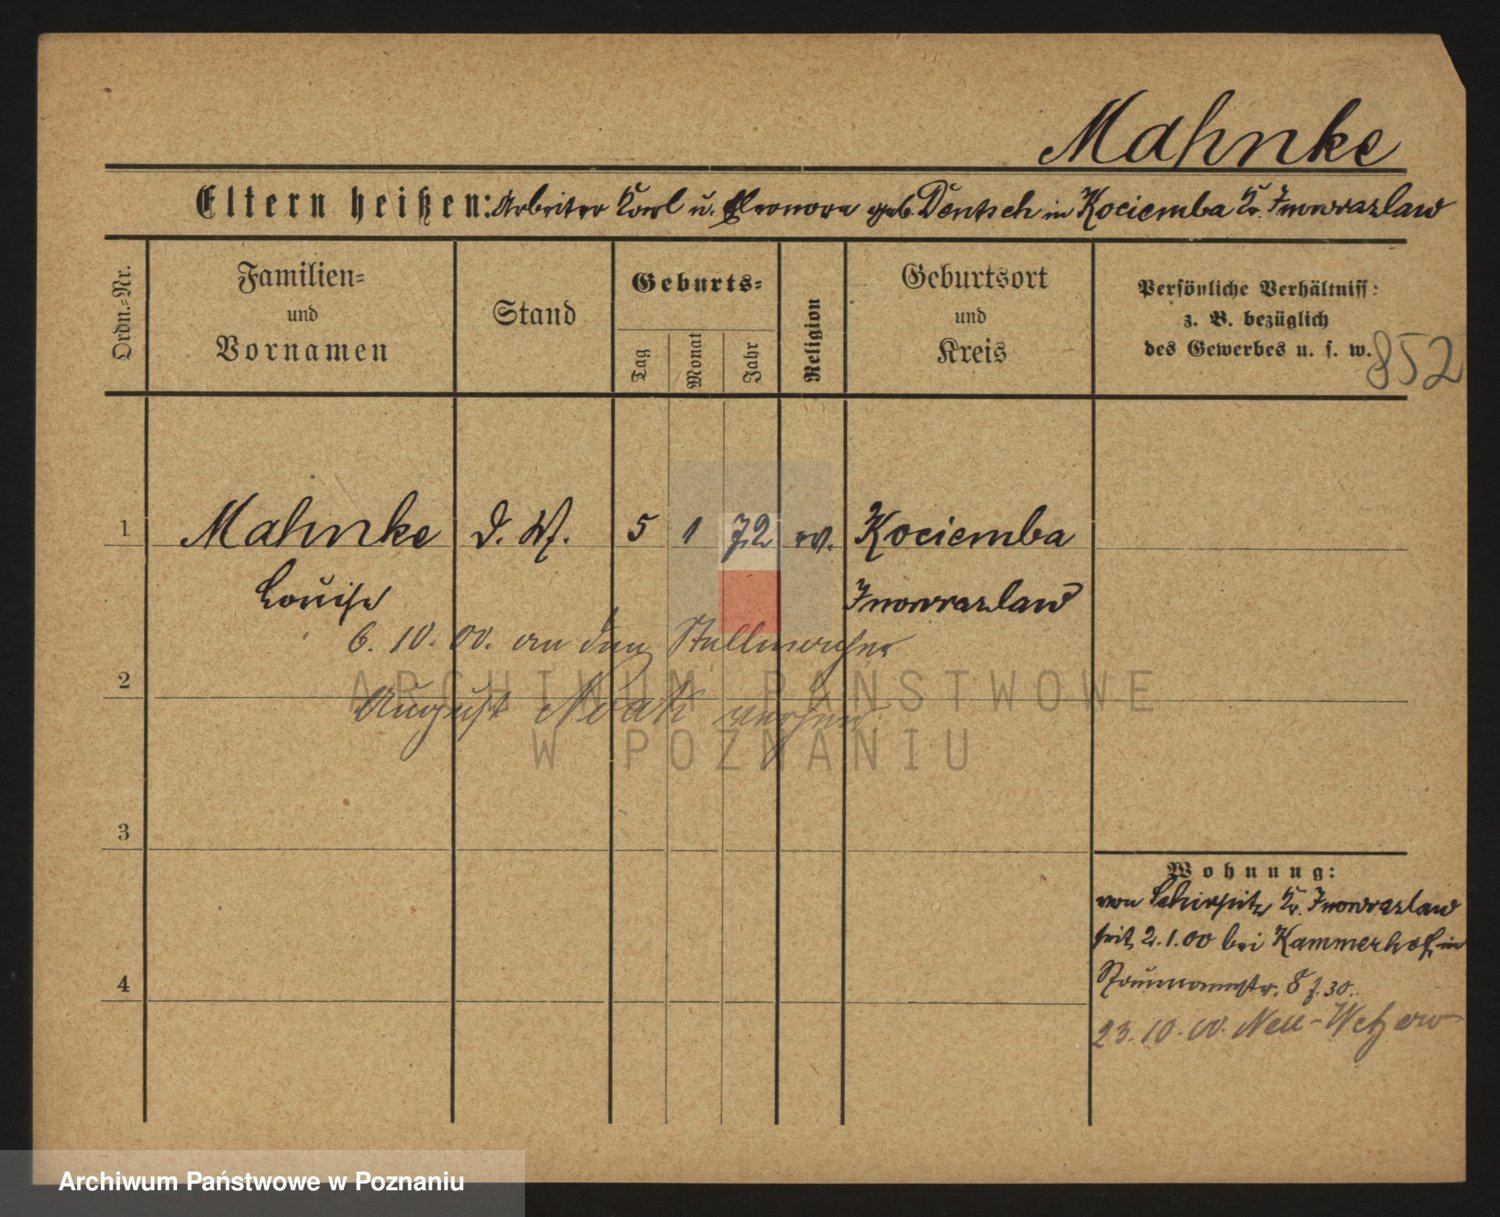 Mahnke
Eltern heißen: Arbeiter Karl u. Eleonore geb. Dentsch in Kociemba Kr. Inowrazlaw
Ordn.-Nr.
Familien-
und
Vornamen
Stand
Geburts-
Tag
Monat
Jahr
Religion
Geburtsort
und
Kreis
Persönliche Verhältniss:
z. B. bezüglich
des Gewerbes u. s. w.
852
1 Mahnke D. M. 5 1 72 ev. Kociemba
Louise Inowrazlaw
6. 10. 00. an den Stellmacher
2
August Noak verh.
3
4
Wohnung:
von Schirpitz Kr. Inowrazlaw
seit 2.1.00 bei Kammerhof, in
Naumannstr. 8 f. 30.
23. 10. 00. Neu-
ARCHIWUM PAŃSTWOWE
W POZNANIU
Archiwum Państwowe w Poznaniu